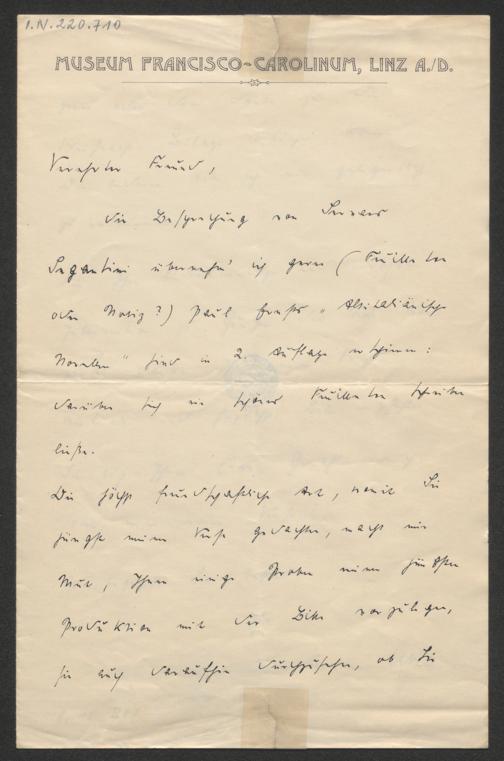 I.N. 220.710
MUSEUM FRANCISCO-CAROLINUM, LINZ A./D.
Verehrter Freund,
die Besprechung von Servaes
Segantini übernehm' ich gern (Feuilleton
oder Notiz?) Paul Ernsts „Altitaliänische
Novellen" sind in 2. Auflage erschienen:
darüber sich ein schönes Feuilleton schreiben
ließe.
Die höchst freundschaftliche Art, womit Sie
jüngst meiner Verse gedachten, macht mir
Mut, Ihnen einige Proben meiner jüngsten
Produktion mit der Bitte vorzulegen,
sie auch daraufhin durchzusehen, ob Sie